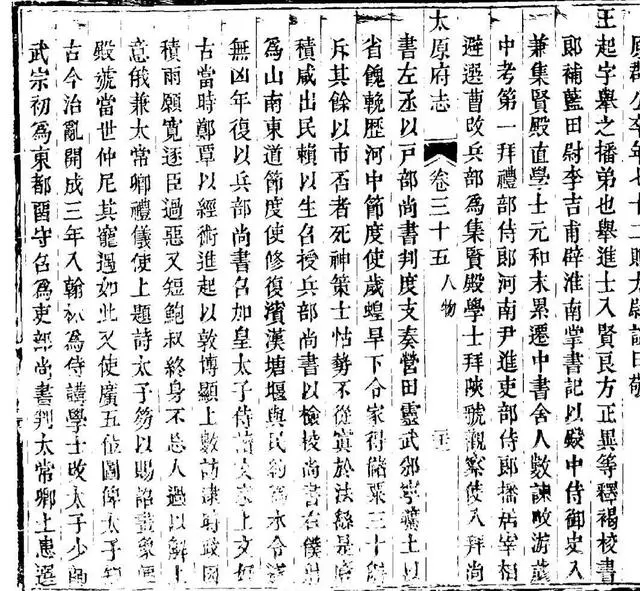 原郡公卒年七十二贈太尉諡曰敬
王起字舉之播弟也舉進士入賢良方正異等釋褐校書
郎補藍田尉李吉甫辟淮南掌書記以殿中侍御史入
兼集賢殿直學士元和末累遷中書舍人數諫畋游
中考第一拜禮部侍郎河南尹進吏部侍郎播居宰相
避選曹改兵部為集賢殿學士拜陝虢觀察使入拜尚
太原府志 卷三十五 人物
書左丞以戶部尚書判度支奏營田靈武邠寧
省餽輓歷河中節度使歲蝗旱下令家得儲粟三十斛
斥其餘以市否者死神策士怙勢不從寘於法繇是
積咸出民賴以生召授兵部尚書以檢校尚書右僕射
為山南東道節度使修復濱漢塘堰與民約為水令遂
無凶年復以兵部尚書召加皇太子侍讀
古當時鄭覃以經術進起以敦博顯上數訪逮時政因
積雨願寬逐臣過惡又短鮑叔終身不忘人過以解上
意俄兼太常卿禮儀使上題詩太子笏以賜詔畫象便
殿號當世仲尼其寵遇如此又使廣五位圖俾太子知
古今治亂開成三年入翰林為侍講學士改太子少師
武宗初為東都留守召為吏部尚書判太常卿上